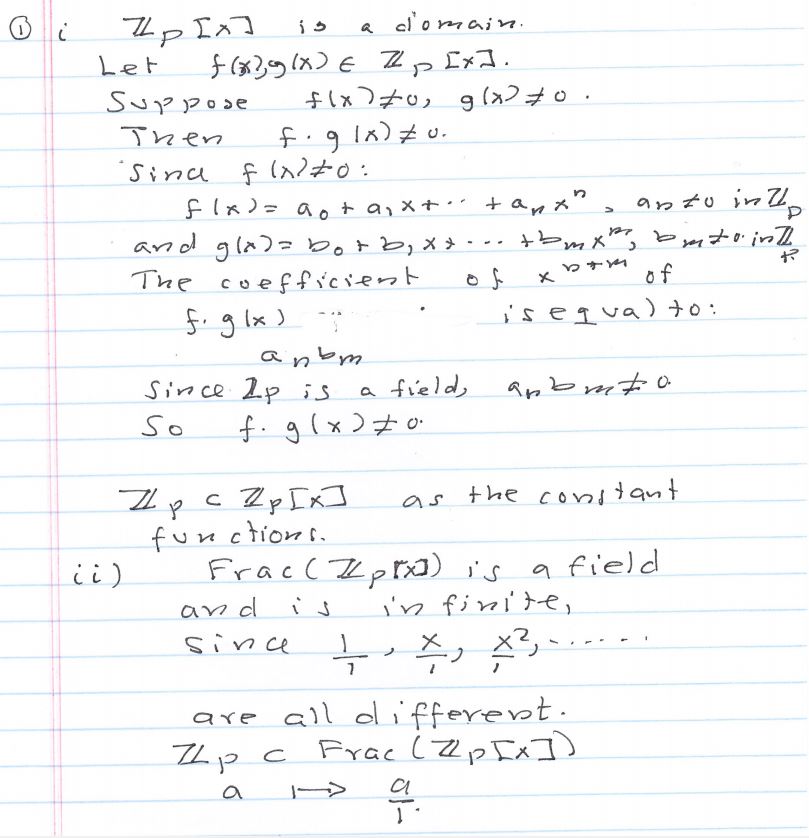 ① i ℤp[x] is a domain.
Let f(x), g(x) ∈ ℤp[x].
Suppose f(x)≠0, g(x)≠0.
Then f·g(x)≠0.
Since f(x)≠0:
f(x)= a₀ + a₁x+·· + aₙxⁿ, aₙ≠0 in ℤp
and g(x)= b₀ + b₁x+··· +bₘxᵐ, bₘ≠0 in ℤp.
The coefficient of xⁿ⁺ᵐ of
f·g(x) is equal to:
aₙbₘ
Since ℤp is a field, aₙbₘ≠0
So f·g(x)≠0.
ℤp ⊂ ℤp[x] as the constant
functions.
ii) Frac(ℤp[x]) is a field
and is infinite,
since 1/1, x/1, x²/1, ······
are all different.
ℤp ⊂ Frac(ℤp[x])
a ↦ a/1.